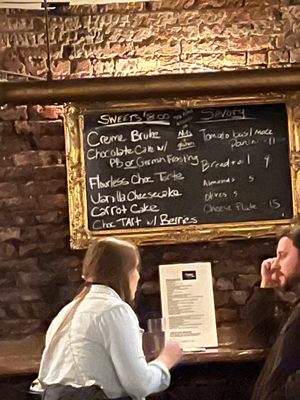 SWEETS $8.00
Creme Brule
Chocolate Cake w/
PB or German Frosting
Flourless Choc Torte
Vanilla Cheesecake
Carrot Cake
Choc TART w/ Berries
Savory
Tomato basil Mozz
Panini - 11
Bread
Almonds 5
Olives 5
Cheese Plate 15